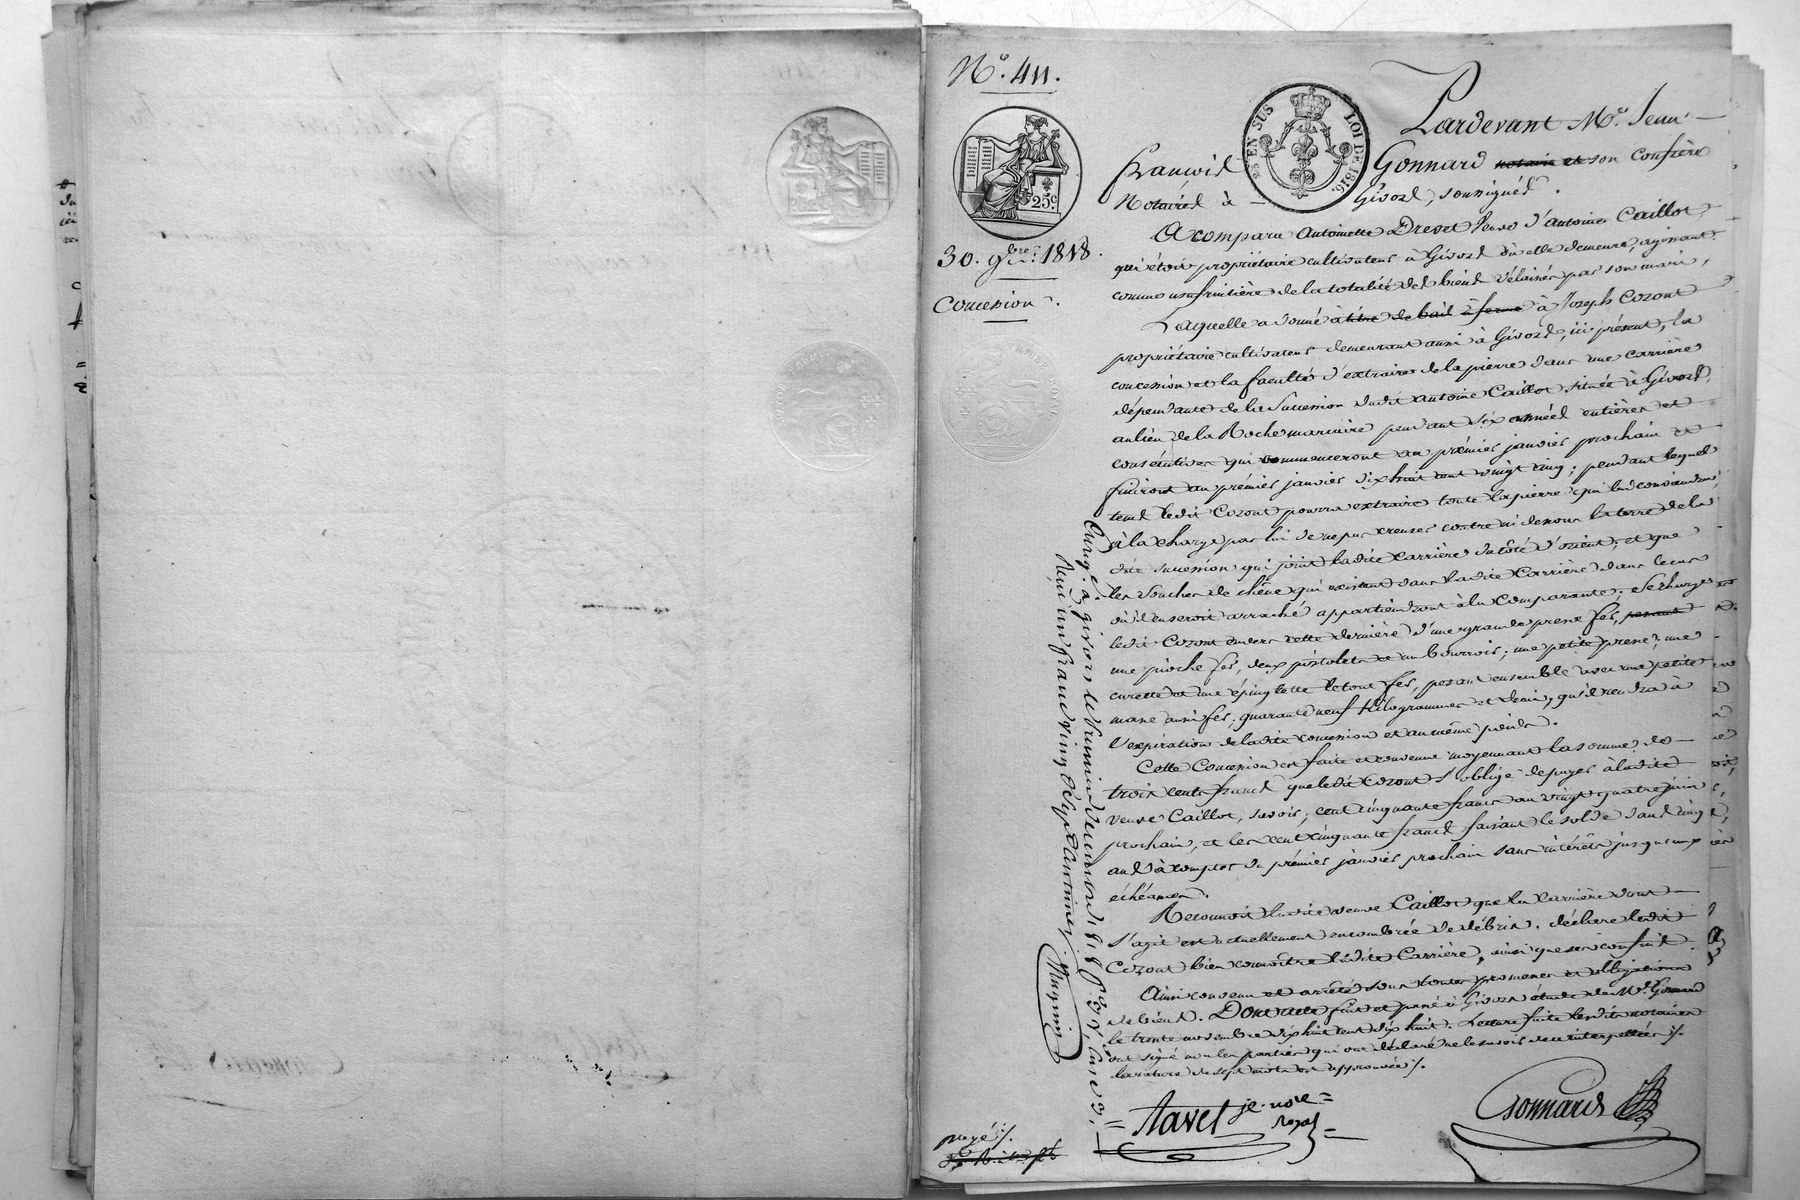 N.o 411.
25c
30. 9bre. 1818.
Concession.
EN SUS LOI DE 1816.
Pardevant M.e Jean
François Gonnard notaire et son confrère
Notaires à Givors, soussignés.
A comparu Antoinette Drevet veuve d'Antoine Caillot,
qui étoit propriétaire cultivateur à Givors où elle demeure, agissant
comme usufruitière de la totalité des biens délaissés par son mari,
Laquelle a donné à titre de bail à ferme à Joseph Cozont
propriétaire cultivateur demeurant aussi à Givors, ici présent, la
concession et la faculté d'extraire de la pierre dans une carrière
dépendante de la succession dudit Antoine Caillot située à Givors,
au lieu de la Roche pendant six années entières et
consécutives qui commenceront au prémier janvier prochain et
finiront au prémier janvier dix huit cent vingt cinq; pendant lequel
tems ledit Cozont pourra extraire toute la pierre qui lui conviendra,
à la charge par lui de ne pas creuser contre ni dessous la terre de la
dite succession qui joint ladite carrière du côté d'orient; et que
les souches de chêne qui existent dans ladite carrière dans le cas
où il en seroit arraché appartiendront à la comparante. Se charge
ledit Cozont envers cette dernière d'une grande presse fer, pesant
une pioche fer, deux pistolets et un bourroir; une petite presse, une
curette et une épinglette le tout fer, pesant ensemble avec une petite
masse aussi fer, quarante neuf kilogrammes et demi, qu'il rendra à
l'expiration de ladite concession et au même poids.
Cette Concession est faite et convenue moyennant la somme de
trois cents francs que ledit Cozont s'oblige de payer à ladite
veuve Caillot, savoir; cent cinquante francs au vingt quatre juin
prochain, et les cent cinquante francs faisant le solde dans cinq
ans à compter du prémier janvier prochain sans intérêts jusqu'aux
échéances.
Reconnoit ladite veuve Caillot que la carrière dont
s'agit est actuellement encombrée de débris. déclare ledit
Cozont bien connoitre ladite Carrière, ainsi que ses confins.
Ainsi convenu et arrêté sous toutes promesses et obligations
de biens. Dont acte fait et passé à Givors étude de M.e Gonnard
le trente novembre dix huit cent dix huit. Lecture faite lesdits notaires
ont signé non les parties qui ont déclaré ne le savoir de ce interpellées ./.
la rature de sept mots est approuvée ./.
Tavel
Gonnard
payé ./.
Enreg.é à givors le 1818
Reçu un franc vingt